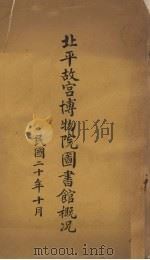 北平故宮博物院圖書館概況
民國二十年十月
www.todayonline.net